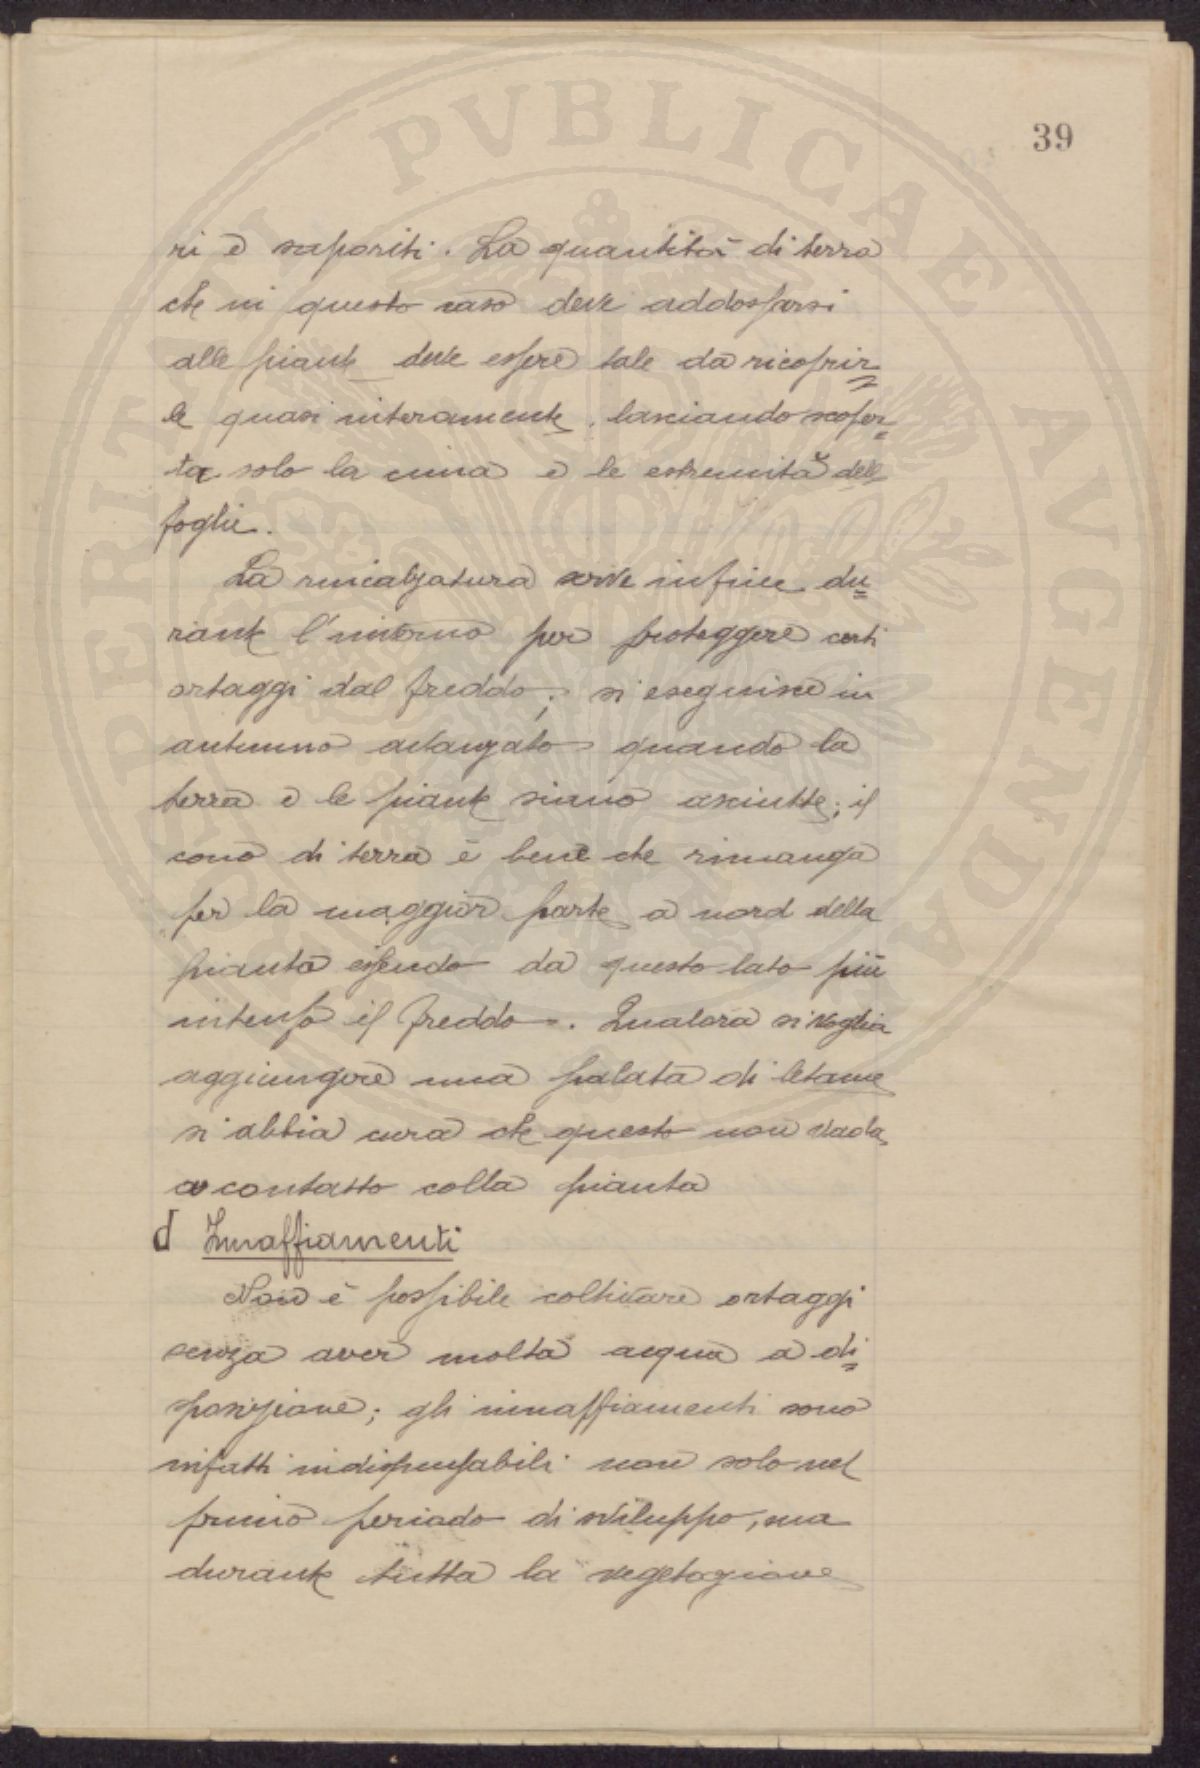 39
ri e saporiti. La quantità di terra
che in questo caso deve addossarsi
alle piante deve essere tale da ricoprir=
le quasi interamente, lasciando scoper=
ta solo la cima e le estremità delle
foglie.
La rincalzatura serve infine du=
rante l'inverno per proteggere certi
ortaggi dal freddo; si eseguisce in
autunno avanzato quando la
terra e le piante siano asciutte; il
cono di terra è bene che rimanga
per la maggior parte a nord della
pianta essendo da questo lato più
intenso il freddo. Qualora si voglia
aggiungere una palata di letame
si abbia cura che questo non vada
a contatto colla pianta
d Innaffiamenti
Non è possibile coltivare ortaggi
senza aver molta acqua a di=
sposizione; gli innaffiamenti sono
infatti indispensabili non solo nel
primo periodo di sviluppo, ma
durante tutta la vegetazione
PERITAT PVBLICAE AVGENDAE